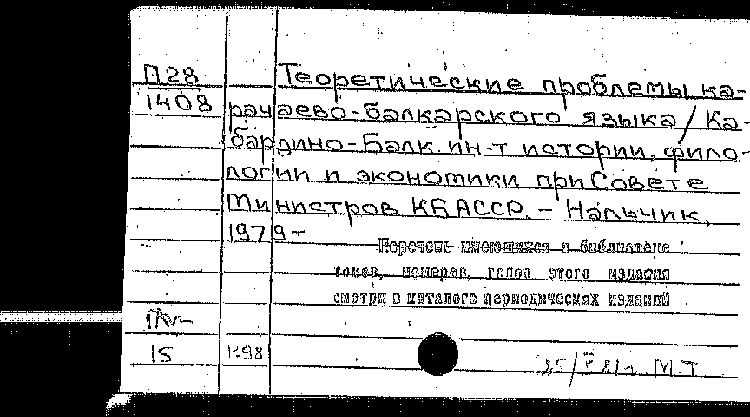 П28 Теоретические проблемы ка-
1408 рачаево-балкарского языка / Ка-
бардино-Балк. ин-т истории, фило-
логии и экономики при Совете
Министров КБАССР. - Нальчик,
1979-
Перечень имеющихся в библиотеке
томов, номеров, годов этого издания
смотри в каталоге периодических изданий
15 1-98
М.Т.